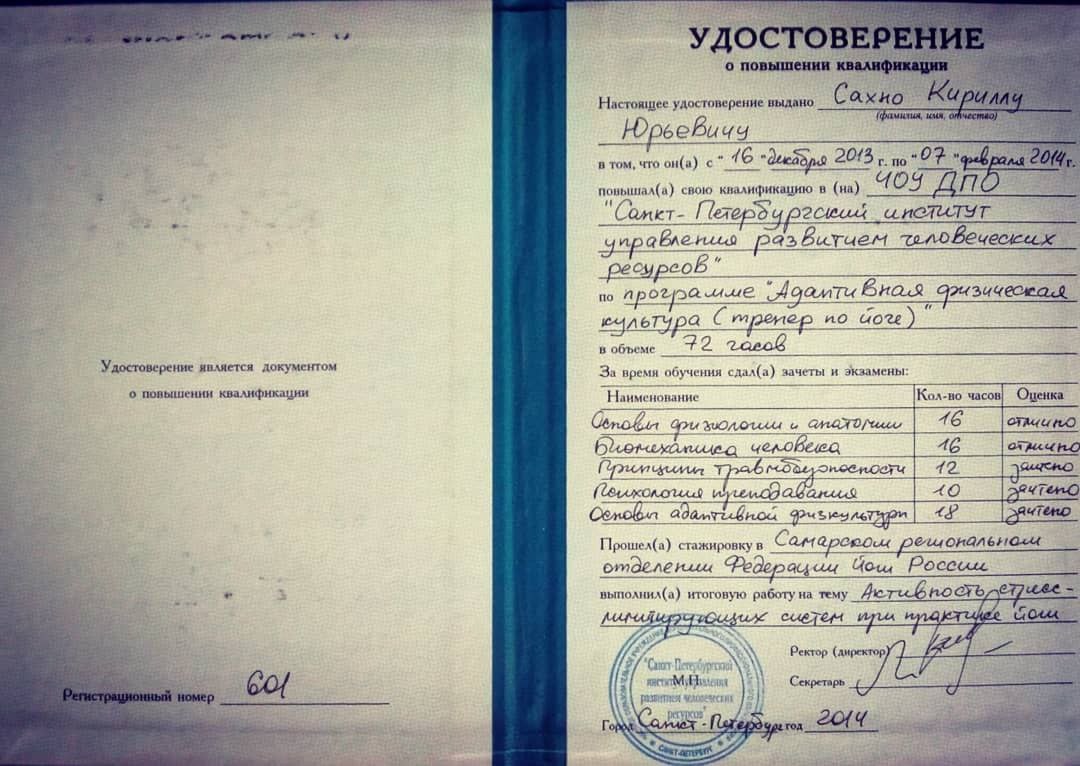 Удостоверение является документом
о повышении квалификации
Регистрационный номер 601
УДОСТОВЕРЕНИЕ
о повышении квалификации
Настоящее удостоверение выдано Сахно Кириллу
(фамилия, имя, отчество)
Юрьевичу
в том, что он(а) с "16" декабря 2013 г. по "07" февраля 2014 г.
повышал(а) свою квалификацию в (на) ЧОУ ДПО
"Санкт-Петербургский институт
управления развитием человеческих
ресурсов"
по программе "Адаптивная физическая
культура (тренер по йоге)"
в объеме 72 часов
За время обучения сдал(а) зачеты и экзамены:
Наименование Кол-во часов Оценка
Основы физиологии и анатомии 16 отлично
Биомеханика человека 16 отлично
Принципы травмобезопасности 12 зачтено
Психология преподавания 10 зачтено
Основы адаптивной физкультуры 18 зачтено
Прошел(а) стажировку в Самарском региональном
отделении Федерации йоги России
выполнил(а) итоговую работу на тему Активность стресс-
лимитирующих систем при практике йоги
Ректор (директор)
Секретарь
"Санкт-Петербургский
институт управления
развитием человеческих
ресурсов"
САНКТ-ПЕТЕРБУРГ
М.П.
Город Санкт-Петербург год 2014